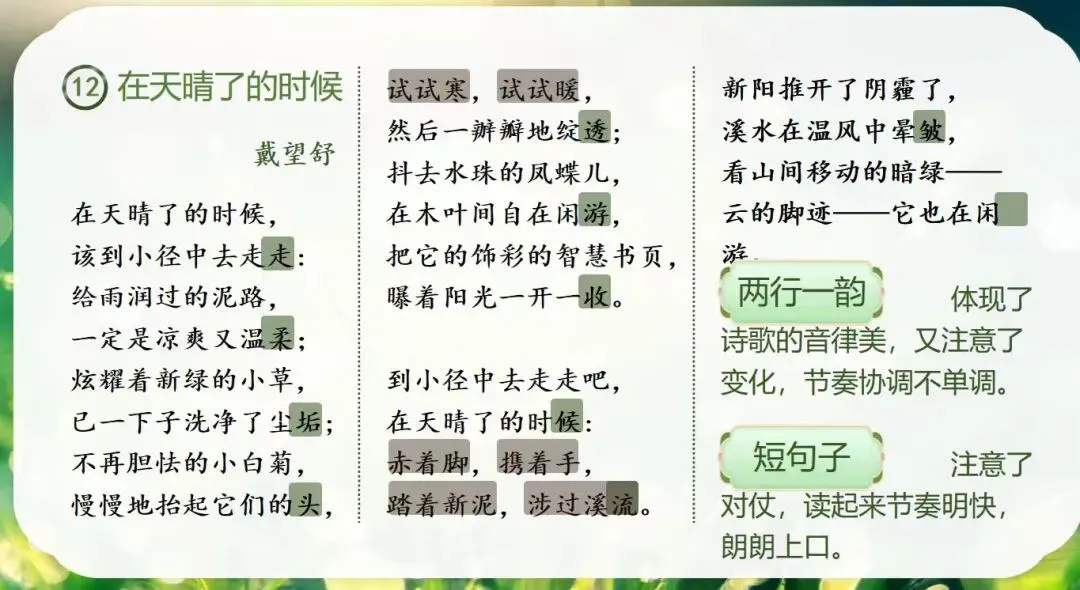 12 在天晴了的时候
戴望舒
在天晴了的时候，
该到小径中去走走：
给雨润过的泥路，
一定是凉爽又温柔；
炫耀着新绿的小草，
已一下子洗净了尘垢；
不再胆怯的小白菊，
慢慢地抬起它们的头，
试试寒，试试暖，
然后一瓣瓣地绽透；
抖去水珠的凤蝶儿，
在木叶间自在闲游，
把它的饰彩的智慧书页，
曝着阳光一开一收。
到小径中去走走吧，
在天晴了的时候：
赤着脚，携着手，
踏着新泥，涉过溪流。
新阳推开了阴霾了，
溪水在温风中晕皱，
看山间移动的暗绿——
云的脚迹——它也在闲
游。
两行一韵 体现了
诗歌的音律美，又注意了
变化，节奏协调不单调。
短句子 注意了
对仗，读起来节奏明快，
朗朗上口。